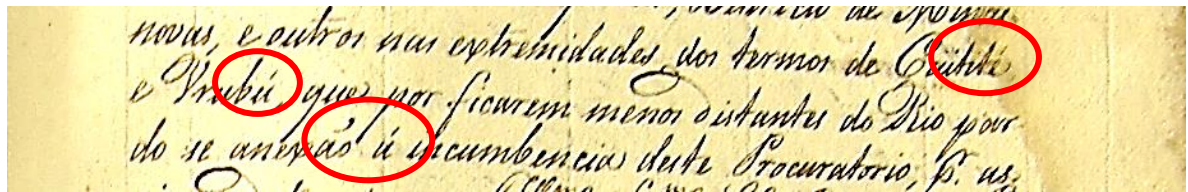 novas, e outros nas extremidades dos termos de Caitité
e Vrubú, que por ficarem menos distantes do Rio par
do se anexão á incumbencia deste Procuratorio, p. as